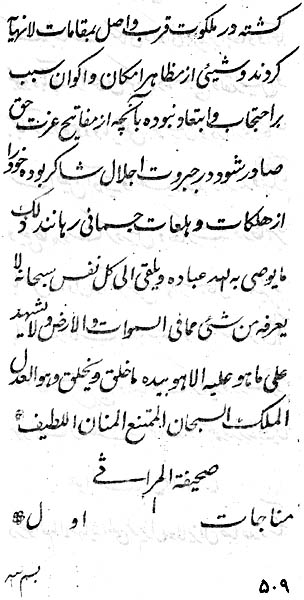 گشته در ملکوت قرب واصل بمقامات لانهایة
کردند و شیئی از مظاهر امکان و اکوان سبب
بر احتجاب و ابتعاد نبوده بآنچه از مفاتیح عزت حق
صادر شود در جبروت اجلال شاکر بوده خود را
از هلکات و بلعات جسمانی رهانند ذلک
ما یوصی به لهد عباده ویلقی الی کل نفس سبحانه لا
یعرفه من شئی مما فی السموات والارض ولا یشهد
علی ما هو علیه الا هو بیده ما خلق ویخلق وهو العدل
الملک السبحان الممتنع المنان اللطیف
صحیفة المرا فی
مناجات ا او ل
بسم الله ٥٠٩